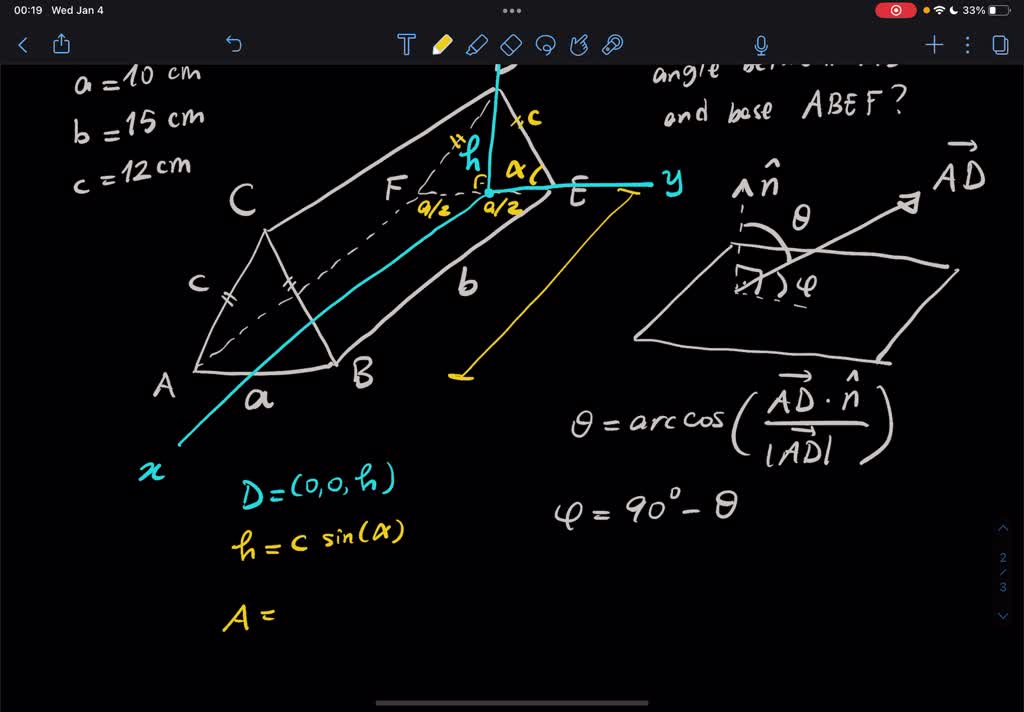 00:19 Wed Jan 4
33%
T
a = 10 cm
b = 15 cm
c = 12 cm
angle
and base ABEF?
C
F
E
A
B
c
c
h
α
a/2
a/2
y
b
a
x
n̂
AD
θ
φ
θ = arccos ( AD · n̂ / |AD| )
φ = 90° - θ
D = (0, 0, h)
h = c sin(α)
A =
2
/
3